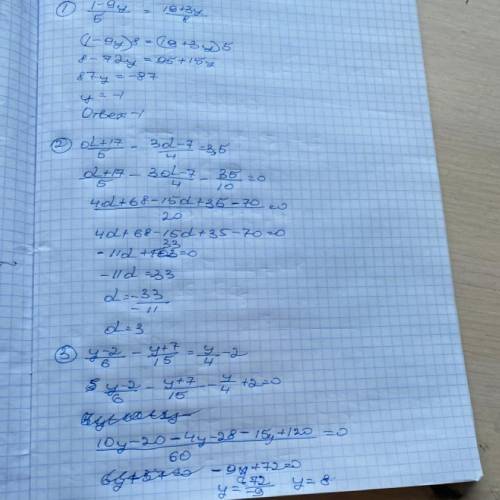 ① (1-9y)/5 = (19+3y)/8
(1-9y)8=(19+3y)5
8-72y=95+15y
87y=-87
y=-1
Ответ-1
② (d+17)/5 - (3d-7)/4=3,5
(d+17)/5 - (3d-7)/4 - 35/10=0
(4d+68-15d+35-70)/20=0
4d+68-15d+35-70=0
-11d+33=0
-11d=33
d=-33/-11
d=3
③ (y-2)/6 - (y+7)/15=y/4-2
(y-2)/6 - (y+7)/15 - y/4+2=0
(10y-20-4y-28-15y+120)/60=0
-9y+72=0
y=-72/-9 y=8